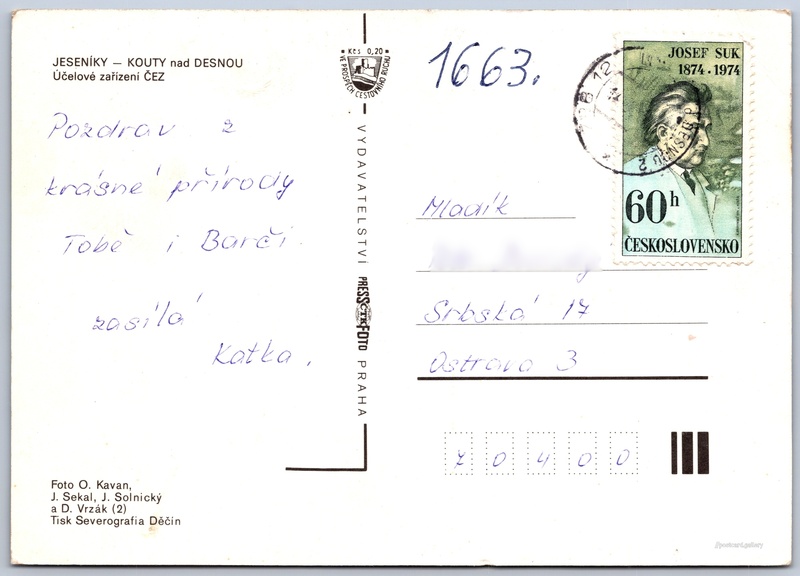 JESENÍKY — KOUTY nad DESNOU
Účelové zařízení ČEZ
Pozdrav z
krásné přírody
Tobě i Barči
zasílá
Katka.
Foto O. Kavan,
J. Sekal, J. Solnický
a D. Vrzák (2)
Tisk Severografia Děčín
Kčs 0,20
VE PROSPĚCH CESTOVNÍHO RUCHU
VYDAVATELSTVÍ
PRESSFOTO
ČTK
PRAHA
1663.
JOSEF SUK
1874.1974
60h
ČESKOSLOVENSKO
12
DESNOU
2
Mladík
Srbská 17
Ostrava 3
7 0 4 0 0
postcard.gallery